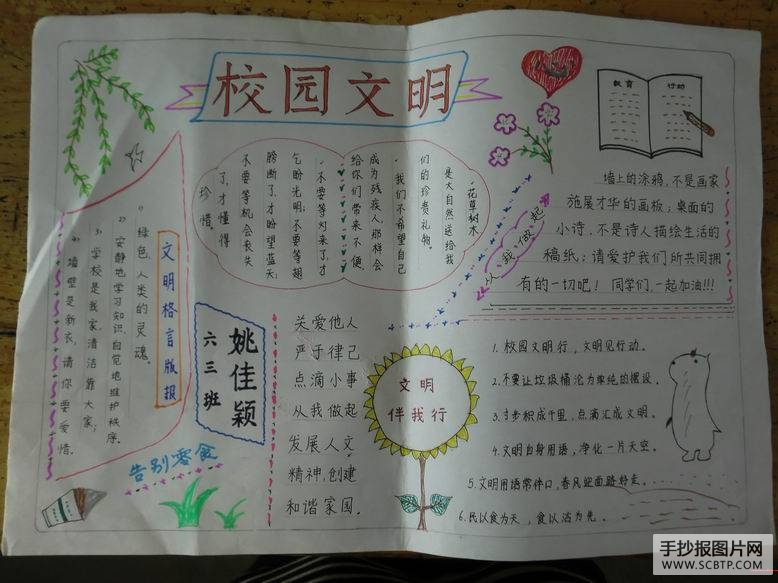 校园文明
教育
行动
墙上的涂鸦，不是画家
施展才华的画板；桌面的
小诗，不是诗人描绘生活的
稿纸；请爱护我们所共同拥
有的一切吧！同学们，一起加油!!!
从我做起
1、花草树木
是大自然送给我
们的珍贵礼物。
2、我们不希望自己
成为残疾人，那样会
给你们带来不便
3、不要等灯来了，才
乞盼光明；不要等翅
膀断了，才盼望蓝天；
不要等机会丧失
了，才懂得
珍惜。
文明格言版报
1、绿色，人类的灵魂。
2、安静地学习知识，自觉地维护秩序。
3、学校是我家，清洁靠大家；
4、墙壁是新衣，请你要爱惜。
姚佳颖
六三班
告别零食
关爱他人
严于律己
点滴小事
从我做起
发展人文
精神，创建
和谐家园。
文明
伴我行
1、校园文明行，文明见行动。
2、不要让垃圾桶沦为单纯的摆设。
3、步积成千里，点滴汇成文明。
4、文明自身用语，净化一片天空。
5、文明用语常伴口，春风迎面路好走。
6、民以食为天，食以洁为先。
手抄报图片网
WWW.SCBTP.COM